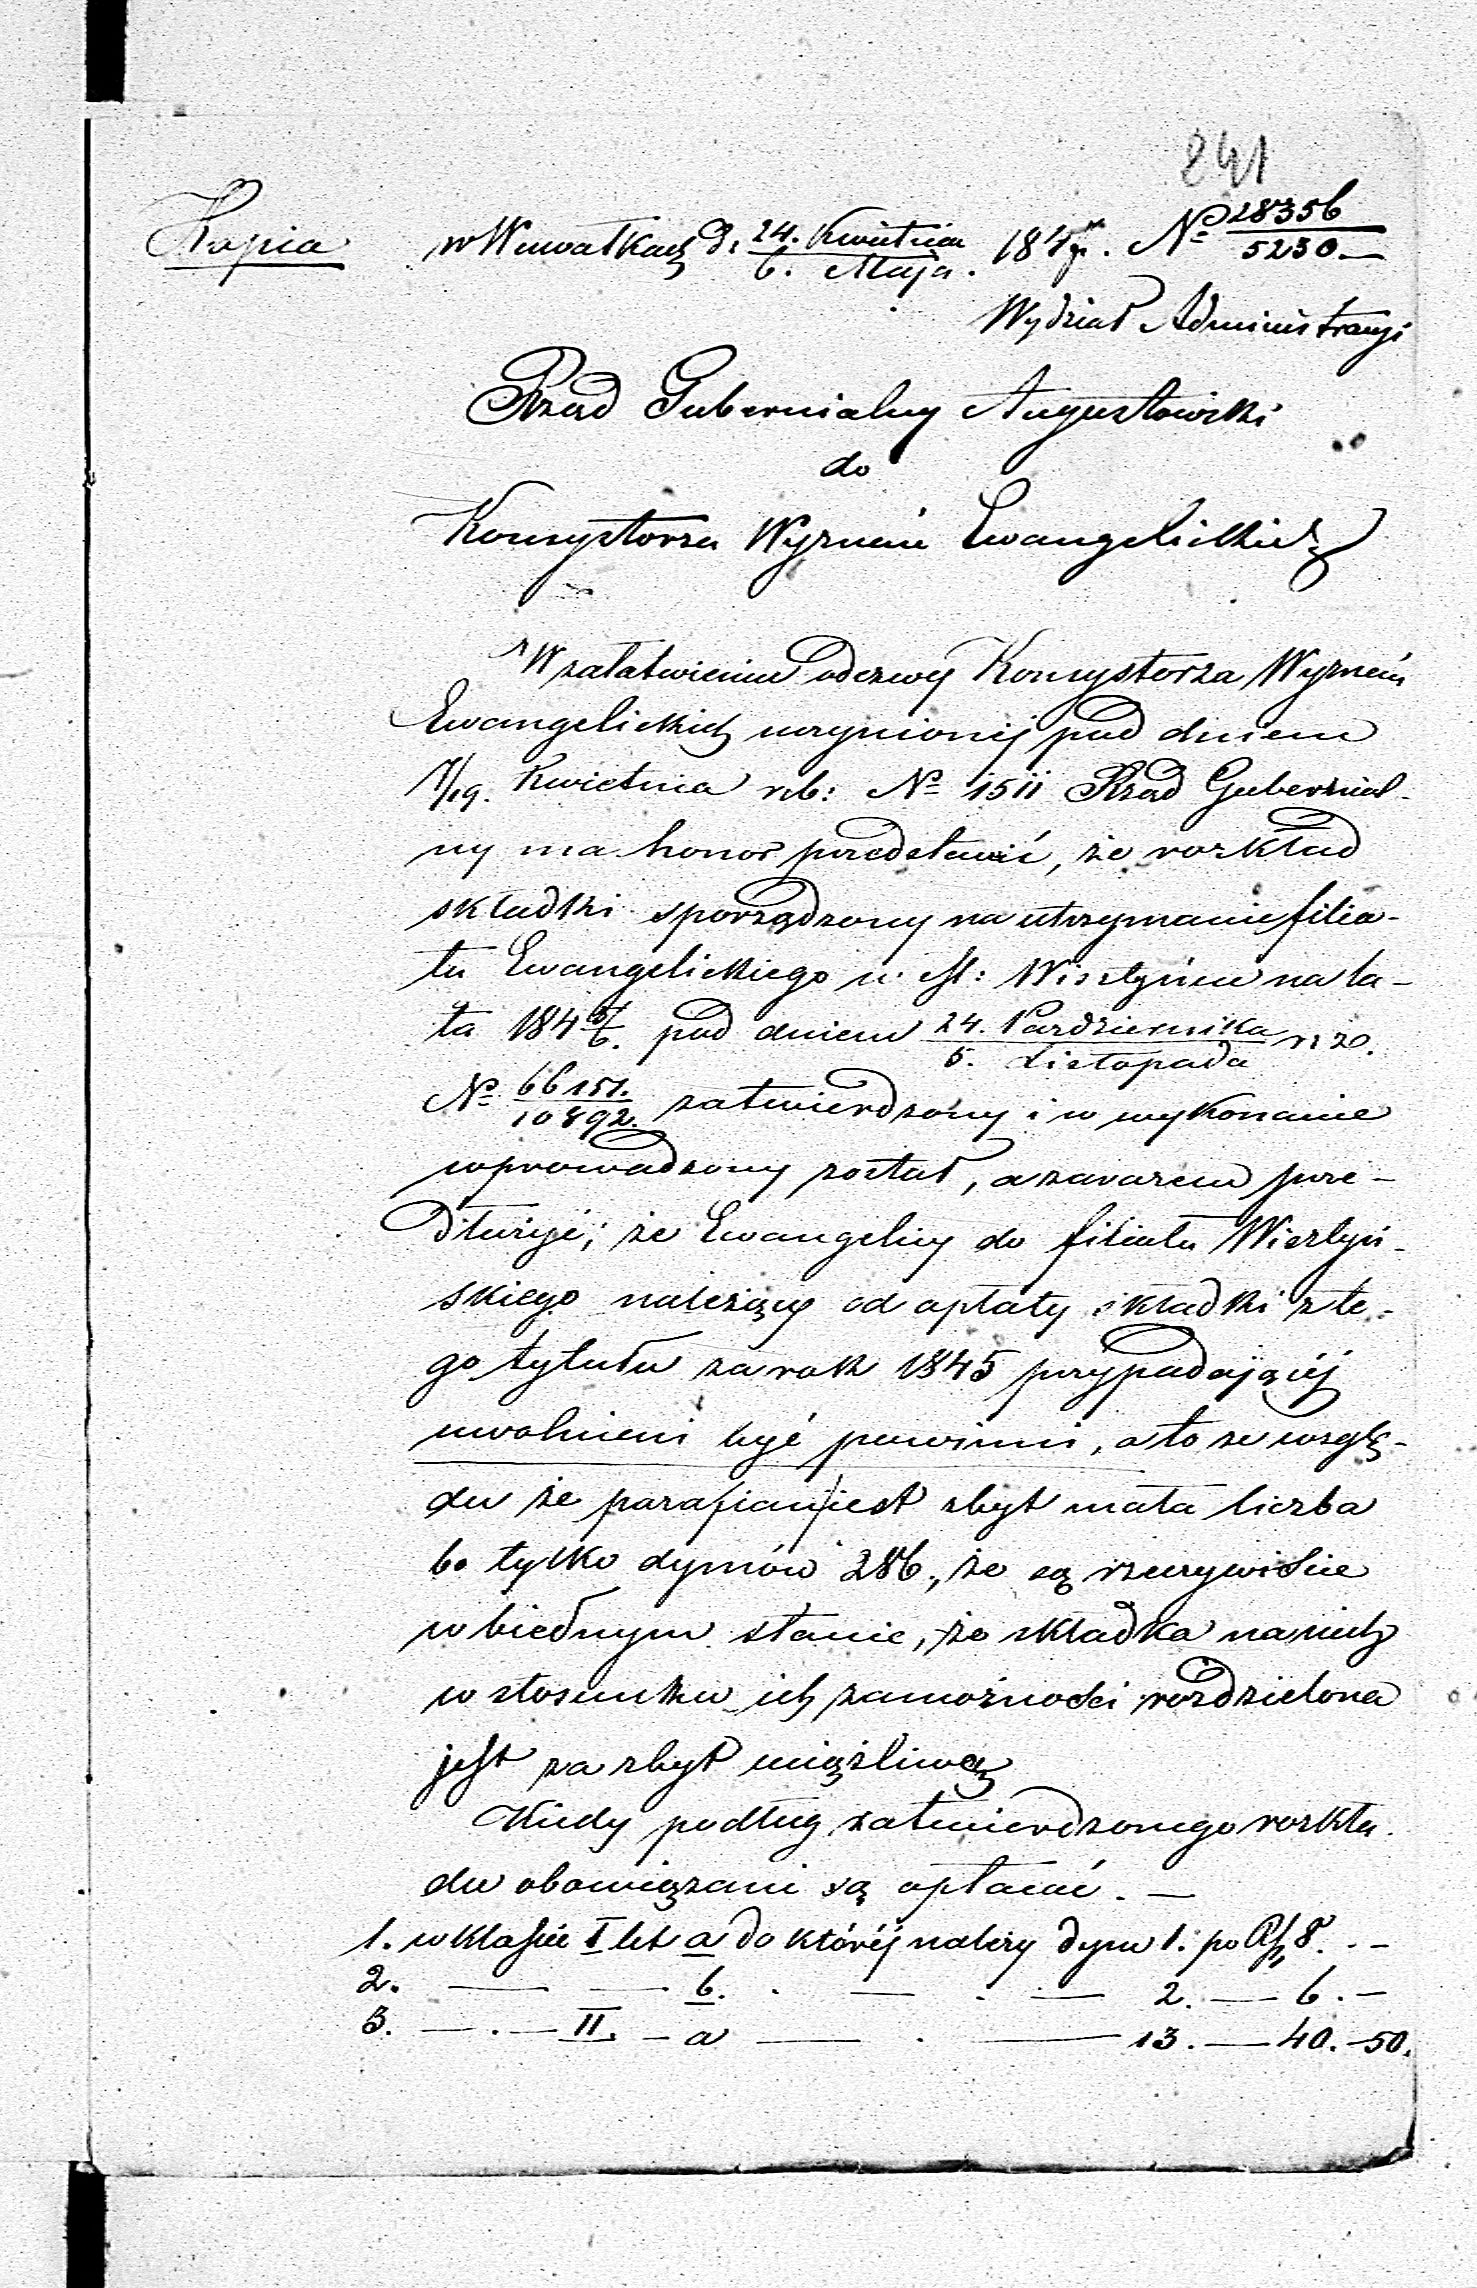 241
Kopia w Suwałkach d. 24. Kwietnia / 6. Maja. 184 r. No 28356 / 5230.—
Wydział Administracyi
Rząd Gubernialny Augustowski
do
Konsystorza Wyznań Ewangelickich
W załatwieniu odezwy Konsystorza Wyznań
Ewangelickich uczynionéj pod dniem
7/19. Kwietnia rb: No 1511 Rząd Gubernial-
ny ma honor przedstawić, że rozkład
składki sporządzony na utrzymanie filia-
łu Ewangelickiego w M: Wisztyńcu na la-
ta 184 5/6. pod dniem 24. Października / 5. Listopada r. z.
No 66151. / 10892. zatwierdzony i w wykonanie
wprowadzony został, a zarazem prze-
dłużyć, że Ewangelicy do filiału Wisztyń-
skiego należący od opłaty składki z te-
go tytułu za rok 1845 przypadającéj
uwolnieni być powinni, a to ze wzglę-
du że parafian jest zbyt mała liczba
bo tylko dymów 286., że są rzeczywiście
w biednym stanie, że składka na nich
w stosunku ich zamożności rozdzielona
jest za zbyt uciążliwą
Kiedy podług zatwierdzonego rozkła-
du obowiązani są opłacać.—
1. w klassie I lit a do któréj należy dym 1. po Rs 8. . —
2. — — b. . — . — 2. — 6. —
3. — . — II. — a — . — 13. — 40. — 50.